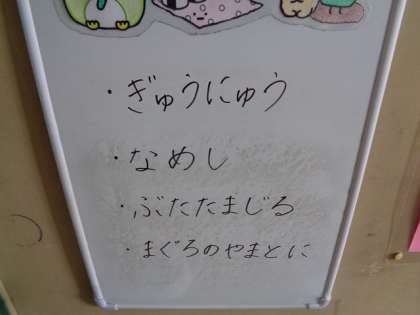 ・ぎゅうにゅう
・なめし
・ぶたたまじる
・まぐろのやまとに